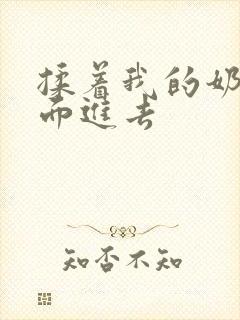 揉着我的奶
而进去
知否不知